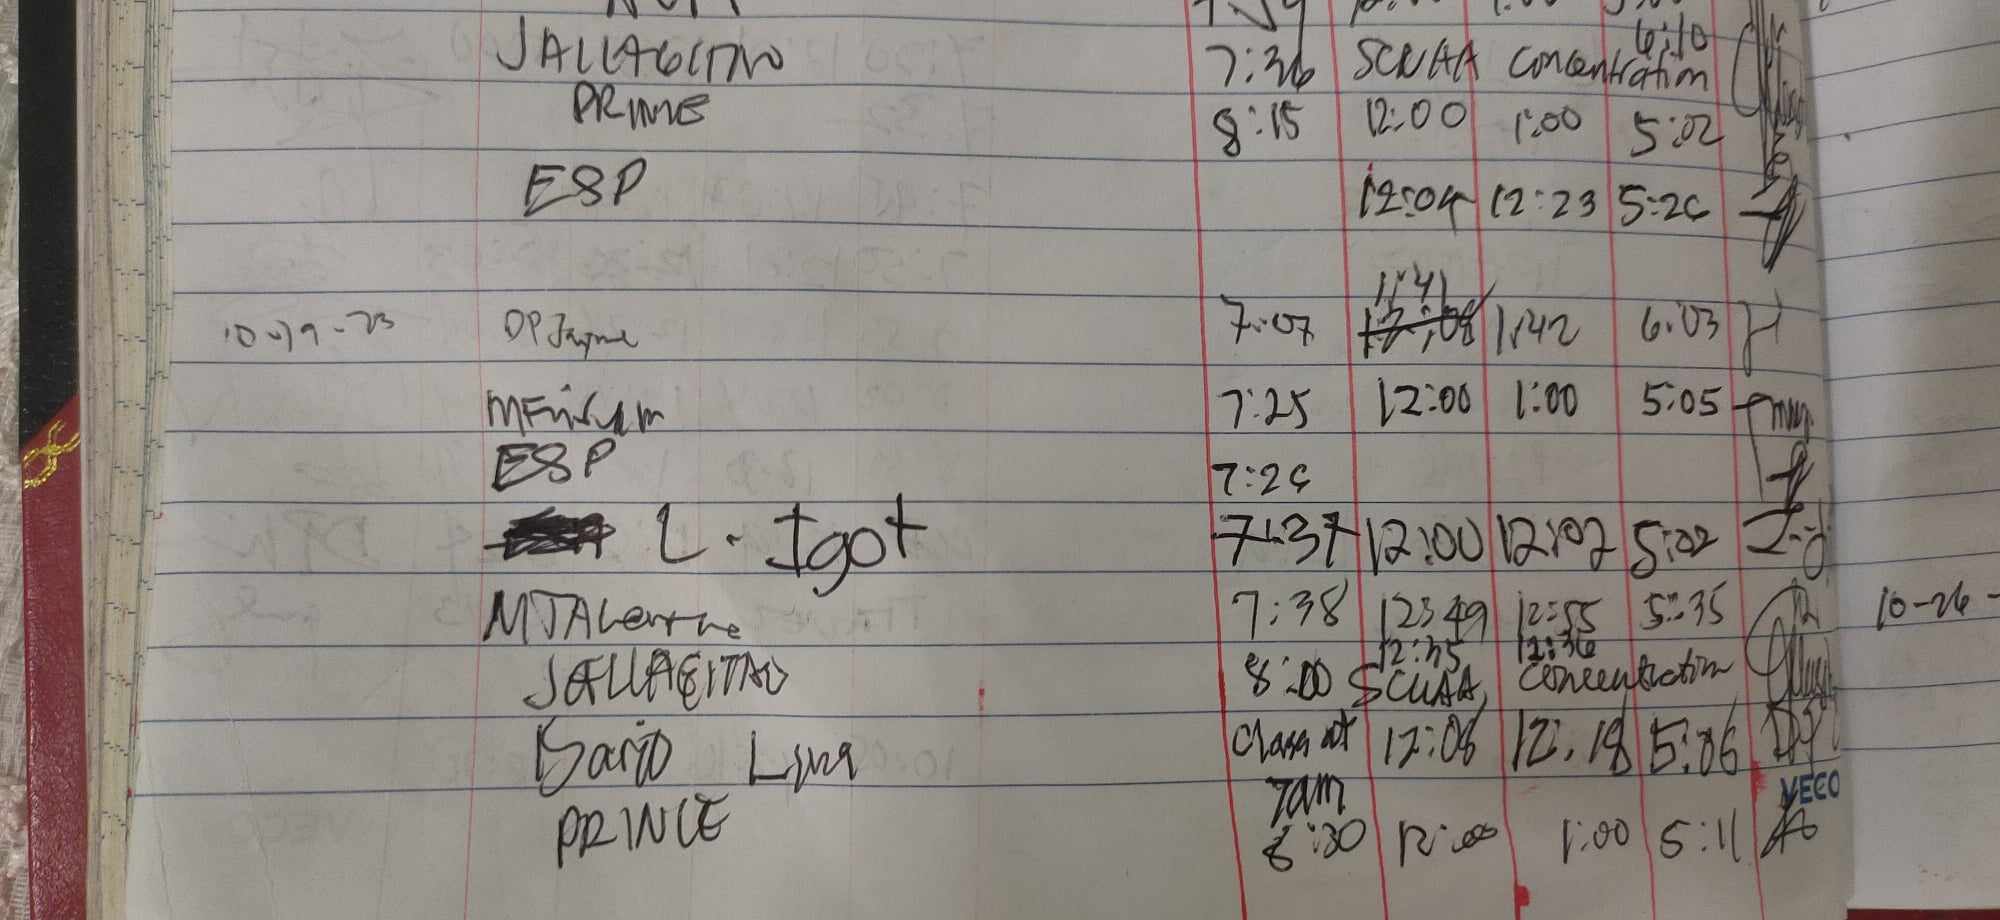 7:36 SCUAA Concentration 6:10
PRINCE 8:15 12:00 1:00 5:02
ESP 12:04 12:23 5:26
10-19-23 DPJayme 7:07 11:41 1:42 6:03
7:25 12:00 1:00 5:05
ESP 7:26
L. Igot 7:37 12:00 12:02 5:02
7:38 12:49 12:55 5:35
12:35 12:36
8:00 SCUAA, Concentration
Dario Lina Class at 12:06 12:18 5:06
7am
VECO
PRINCE 8:30 12:00 1:00 5:11
10-26-